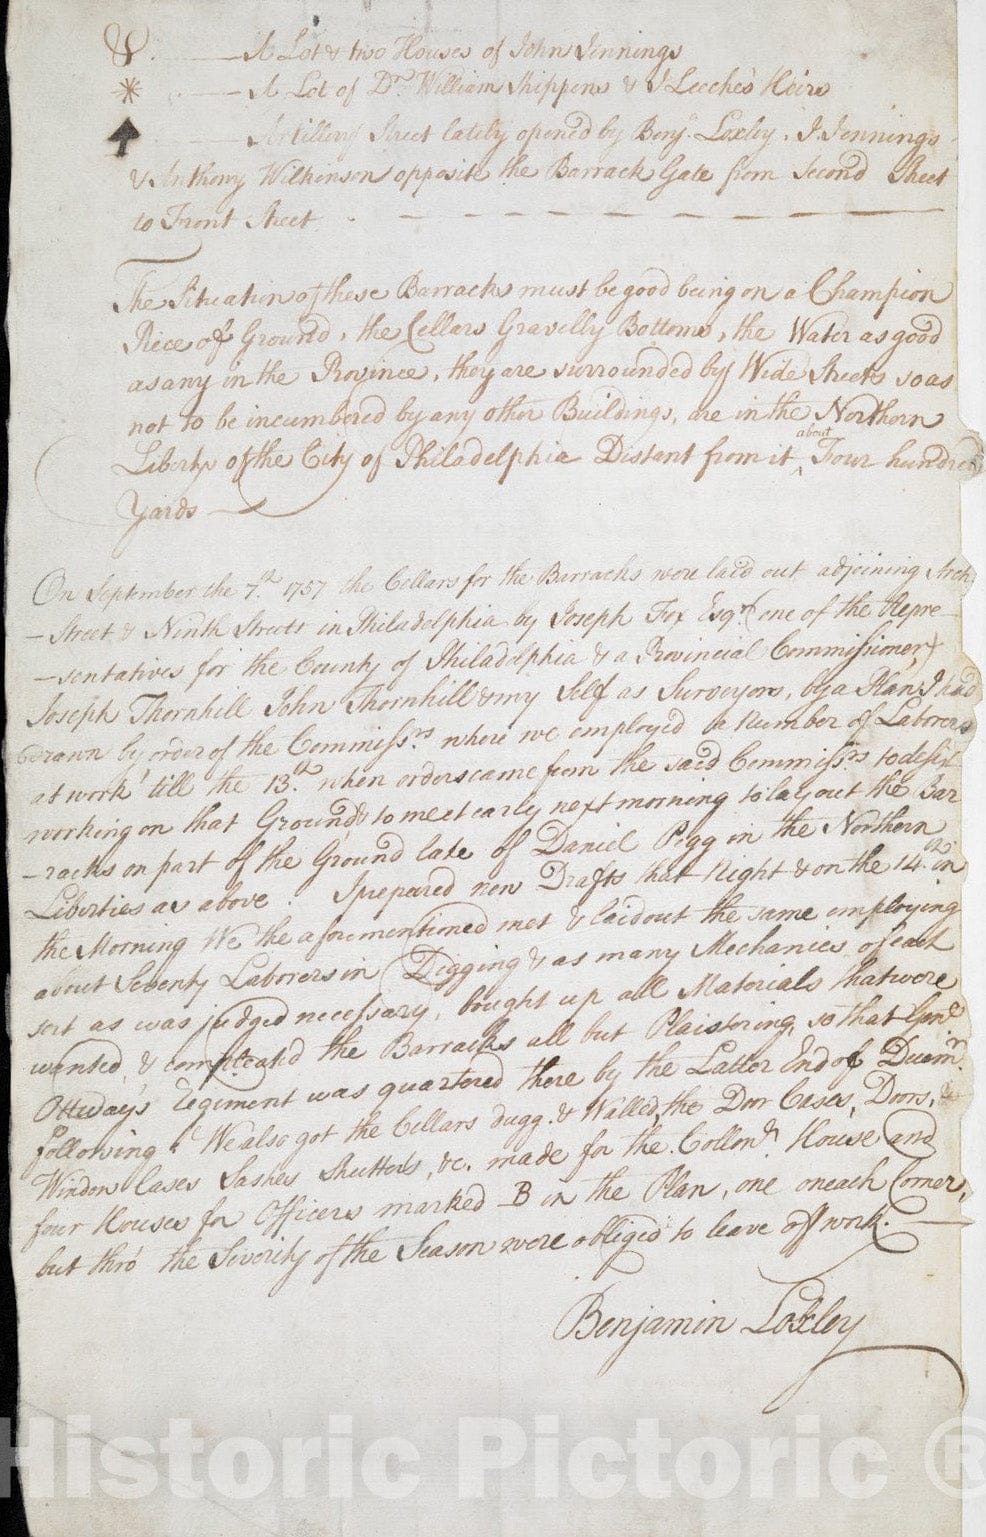 A Lot & two Houses of John Jinnings
A Lot of Dr. William Shippens & J Leeches Heirs
Artillery Street lately opened by Benj. Loxley, J. Jennings
& Anthony Wilkinson opposite the Barrack Gate from Second Street
to Front Street
The Situation of these Barracks must be good being on a Champion
Piece of Ground, the Cellars Gravilly Bottoms, the Water as good
as any in the Province, they are surrounded by Wide Streets so as
not to be incumbered by any other Buildings, are in the Northorn
about
Liberty of the City of Philadelphia Distant from it ^ Four hundred
Yards
On September the 7th. 1757 the Cellars for the Barracks were laid out adjoining Arch
- Street & Ninth Streets in Philadelphia by Joseph Fox Esqr. (one of the Repre-
-sentatives for the County of Philadelphia & a Provincial Commissioner)
Joseph Thornhill John Thornhill & my Self as Surveyors, by a Plan I had
Drawn by order of the Commissrs. where we employed a Number of Laborers
at work 'till the 13th. when orders came from the said Commissrs to desist
working on that Ground, & to meet early next morning to lay out the Bar
-racks on part of the Ground late of Daniel Pegg in the Northern
Liberties as above. I prepared new Drafts that Night & on the 14th. in
the Morning We the aforementioned met & laid out the same employing
about Seventy Laborers in Digging & as many Mechanics of each
sort as was judged necessary, bought up all Materials that were
wanted, & compleated the Barracks all but Plaistering, so that Genl.
Ottway's Regiment was quartered there by the Latter End of Decemr.
following. We also got the Cellars dugg. & Walled, the Door Cases, Doors, &
Window Cases Sashes Shutters, &c. made for the Collonls. House and
four Houses for Officers marked B in the Plan, one on each Corner,
but thro' the Siverity of the Season were obliged to leave off work.
Benjamin Loxley
Historic Pictoric ®